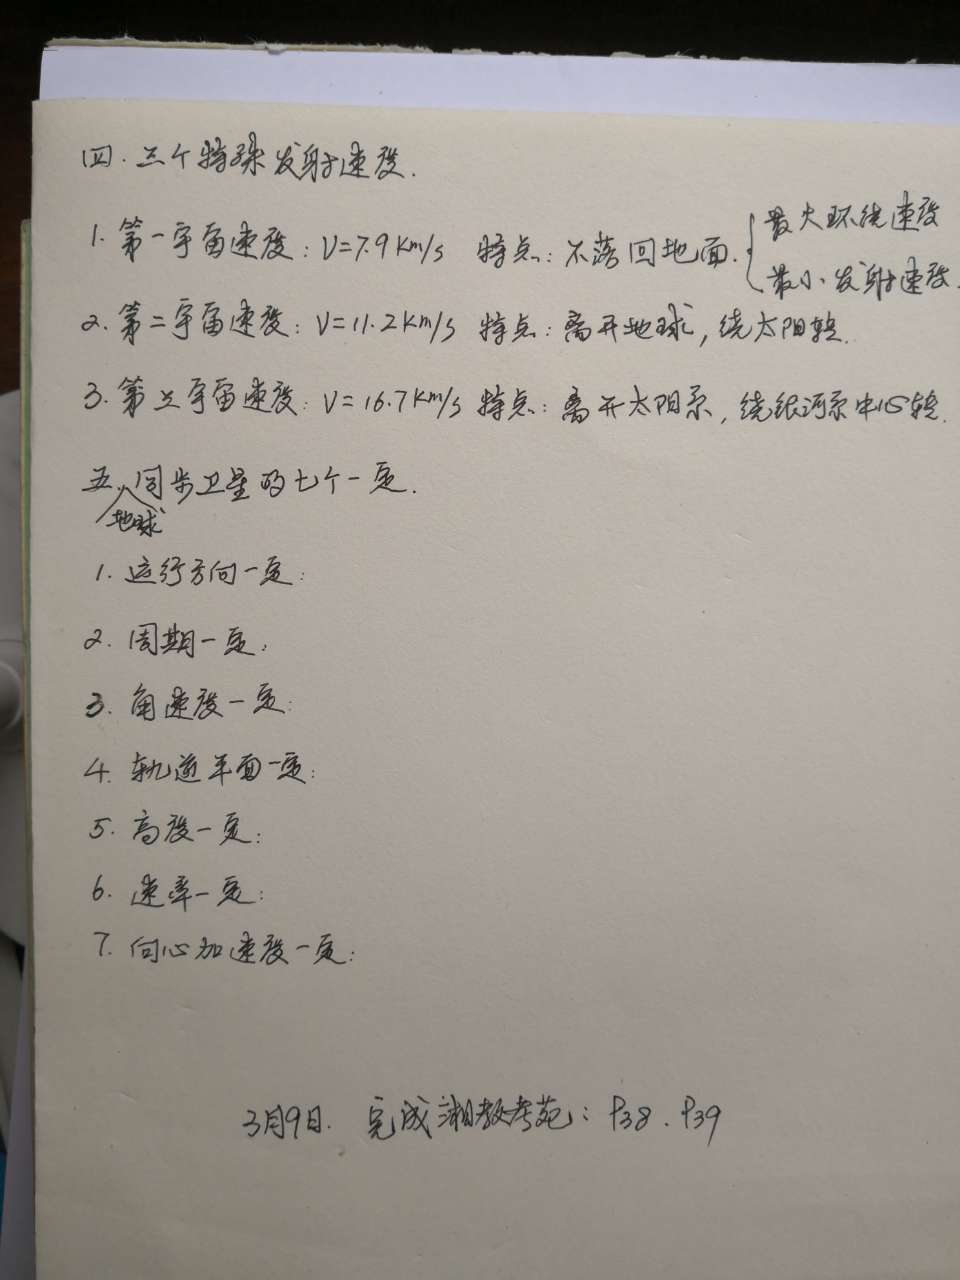 四.三个特殊发射速度.
1.第一宇宙速度:V=7.9Km/s 特点:不落回地面.{最大环绕速度
最小发射速度.
2.第二宇宙速度:V=11.2Km/s 特点:离开地球,绕太阳转.
3.第三宇宙速度:V=16.7Km/s 特点:离开太阳系,绕银河系中心转.
五.同步卫星的七个一定.
地球
1.运行方向一定:
2.周期一定:
3.角速度一定:
4.轨道平面一定:
5.高度一定:
6.速率一定:
7.向心加速度一定:
3月9日. 完成湘教考苑:P38.P39